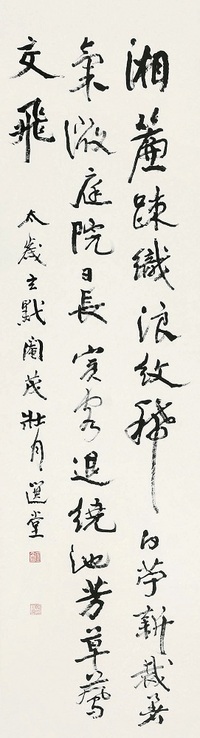 湘簾疎織浪紋稀白苧新裁暑
氣微庭院日長賓客退繞池芳草燕
交飛
太歲玄黓閹茂壯月選堂